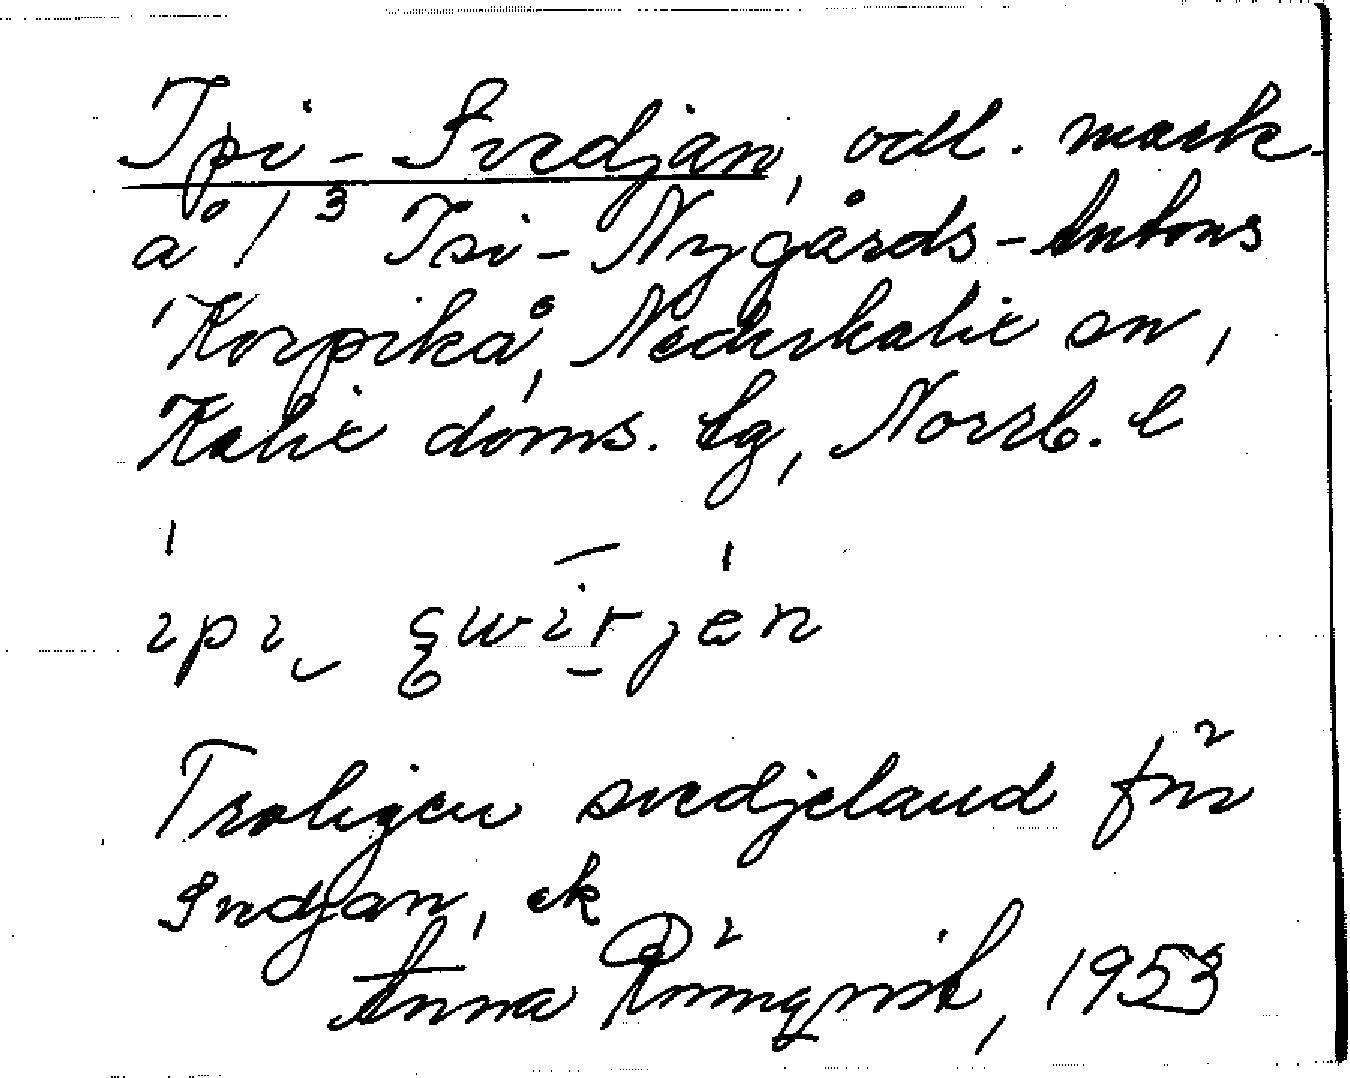 Ipi-Svedjan, odl. mark
å 1³ Isi-Nygårds-Antons
i Korpikå, Nederkalix sn,
Kalix doms. lg, Norrb. l
ipi
Troligen svedjeland för
Svedjan, ek
Anna Rönnqvist, 1953